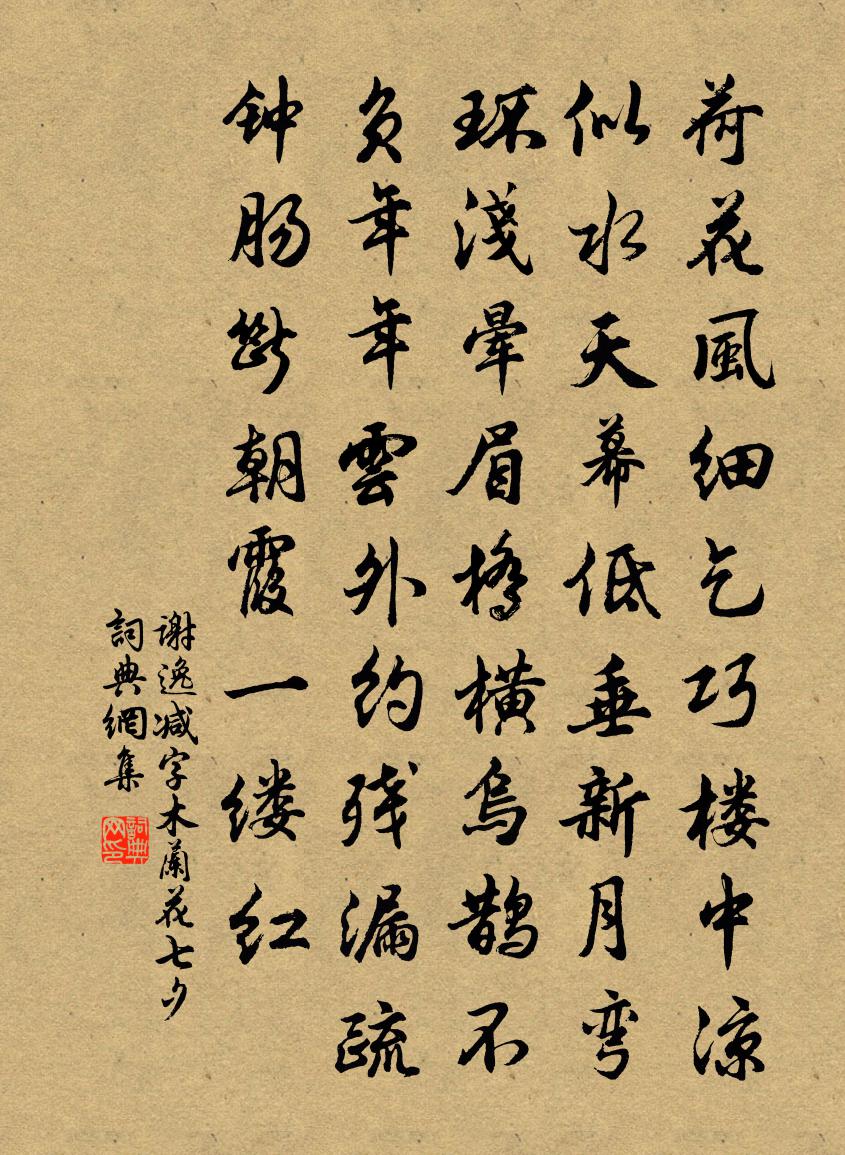 荷花風细乞巧楼中凉
似水天幕低垂新月弯
环浅晕眉橋横烏鹊不
负年年雲外约残漏疏
钟肠断朝霞一缕红
谢逸减字木蘭花七夕
詞典網集
詞典网印